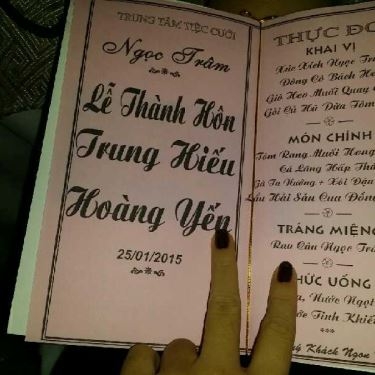 TRUNG TÂM TIỆC CƯỚI
Ngọc Trâm
Lễ Thành Hôn
Trung Hiếu
Hoàng Yến
25/01/2015
THỰC ĐƠ
KHAI VỊ
Xúc Xích Ngọc Tr
Đông Cô Bách H
Giò Heo Muối Quay
Gỏi Củ Hủ Dừa Tôm
MÓN CHÍNH
Tôm Rang Muối Hong
Cá Lăng Hấp
Gà Ta Nướng + Xôi
Lẩu Hải Sản Cua Đồng
TRÁNG MIỆNG
Rau Câu Ngọc Tr
HỨC UỐNG
Nước Ngọt
Tinh Khiế
***
Khách Ngon